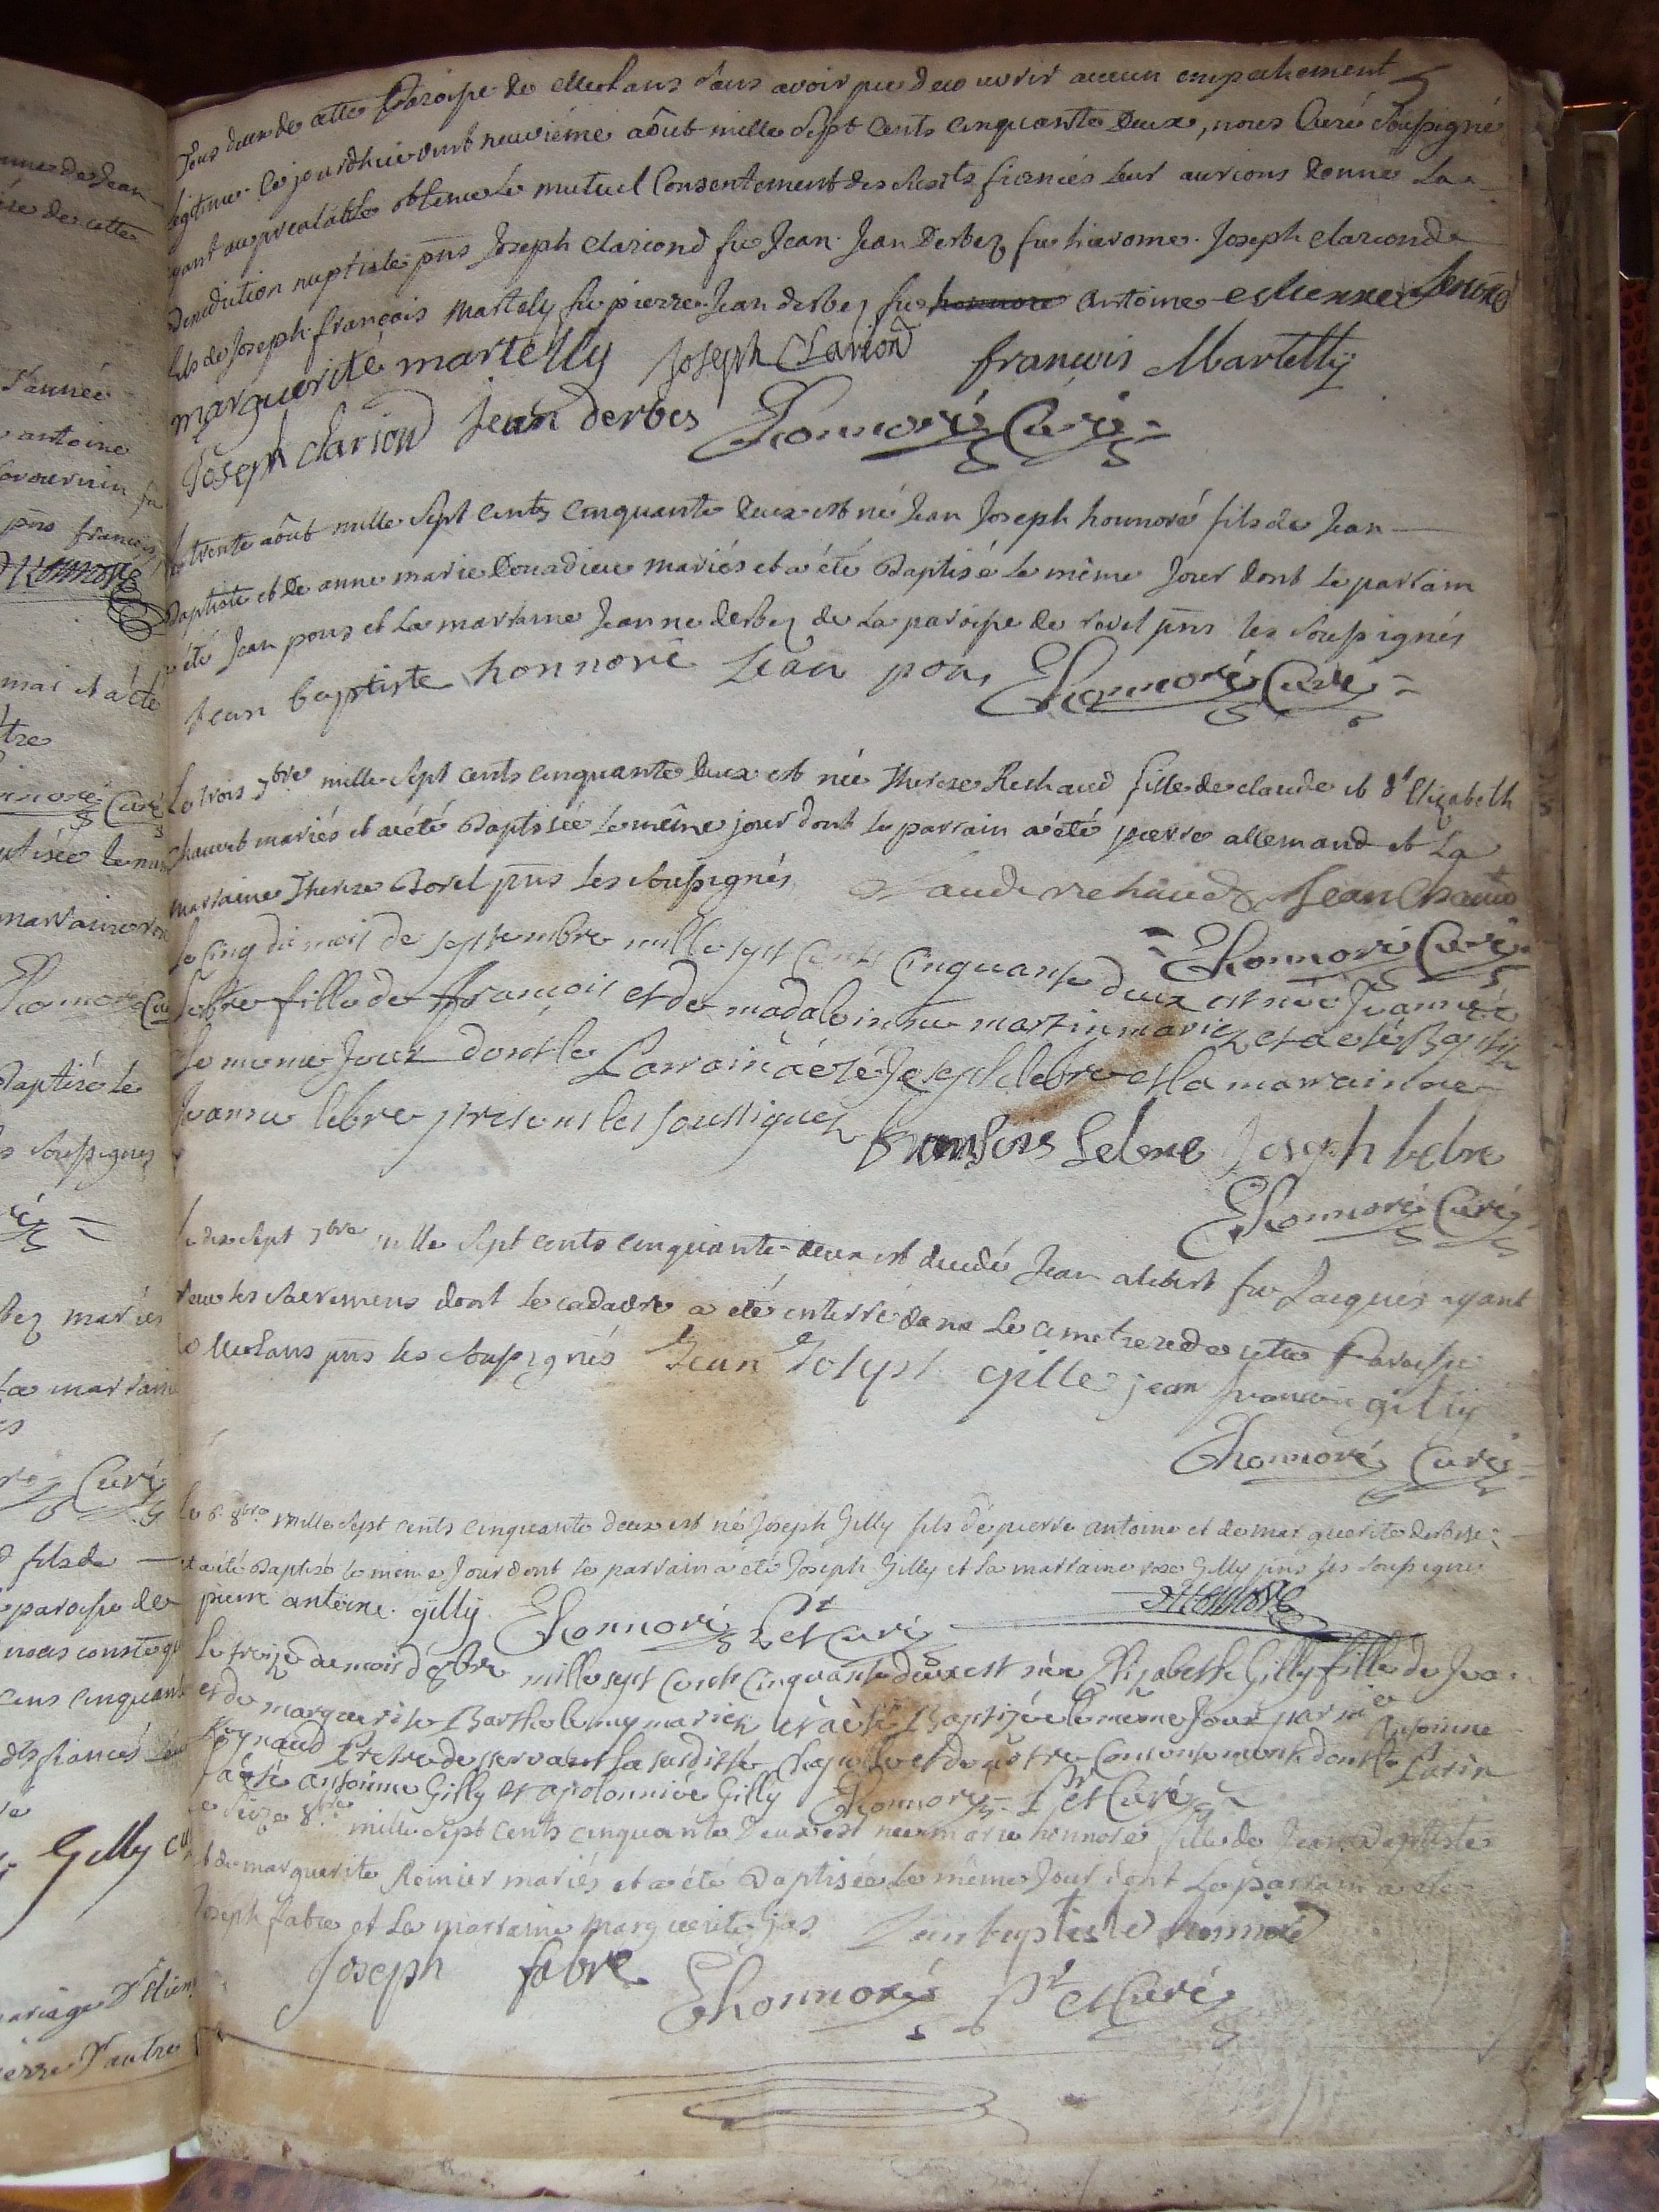 tous deux de cette Paroisse de Meolans sans avoir peu decouvrir aucun empechement
legitime. Ce jourdhui vint neuviéme aôut mille Sept Cents Cinquante Deux, nous Curé soussigné
ayant au prealable obtenu Le mutuel Consentement des fiancés Leur aurions Donné La
Benediction nuptiale pns Joseph clariond fu Jean. Jean Derbez fu hierome. Joseph clariond
fils de Joseph. françois Martely fu pierre. Jean derbez fu antoine estienne honoré
marguerite martelly Joseph Clariond françois Martelly
Joseph clariond Jean derbes Ehonnoré Curé
Le trente aôut mille Sept cents Cinquante Deux est né Jean Joseph honnoré fils de Jean
Baptiste et De anne marie Donadieu mariés et a été Baptisé Le même Jour dont Le parrain
a été Jean pons et La marraine Jeanne derbez de La paroisse de revel pns les soussignés
Jean baptiste honnoré Jean pons Ehonnoré Curé
Le trois 7bre mille Sept cents Cinquante Deux est née Therese Richaud fille de claude et d'Elizabeth
Chauvet mariés et a été Baptisée Le même jour dont Le parrain a été pierre allemand et La
marraine Therese Borel pns Les soussignés Claude rehaud Jean Chauvet
Ehonnoré Curé
Le Cinq du mois de septembre mille sept Cents Cinquante deux est née Jeanne
Lebre fille de François et de madaleinne martin mariez et a été Baptisée
Le meme Jour dont le Parrain a été Joseph lebre et la marrainne
Jeanne lebre presens les soussignez fransois Lebre Joseph lebre
Ehonnoré Curé
Le dix Sept 7bre mille Sept cents Cinquante deux est decedé Jean alebert fu Jacques ayant
receu les sacremens dont le cadavre a été enterré dans Le cimetiere de cette Paroisse
de Meolans pns les soussignés Jean Josept gille jean francois gilly
Ehonnoré Curé
Le 6. 8bre mille Sept cents Cinquante deux est né Joseph Gilly fils de pierre antoine et de marguerite derbese
et a été Baptisé le meme Jour dont le parrain a été Joseph Gilly et La marraine rose Gilly pns les soussignés
pierre antoine gilly. Ehonnoré Pr et Curé
Le treize du mois d'8bre mille sept Cents Cinquante deux est née Elizabeth Gilly fille de Jean
et de marguerite Barthelemy mariez et a été Baptizée le même Jour par mre Antoinne
Reynaud Pretre desservant la susditte Chapelle et de nôtre Consentement dont le Parin
a été antoinne Gilly et apolonnie Gilly Ehonnoré Pr et Curé
Le Seize 8bre mille Sept cents cinquante Deux est née marie honnoré fille de Jean Baptiste
et de marguerite Reinier mariés et a été Baptisée Le même Jour dont Le parrain a été
Joseph fabre et La marraine marguerite jas Jean baptiste honnoré
Joseph fabre Ehonnoré Pr et Curé